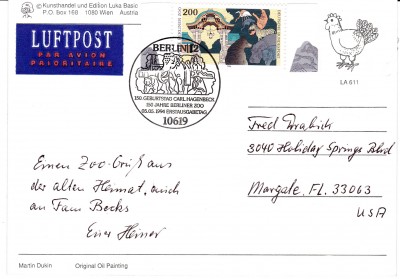 © Kunsthandel und Edition Luka Basic
P.O. Box 168 1080 Wien Austria
LUFTPOST
PAR AVION
PRIORITAIRE
200
BERLIN 12
150. GEBURTSTAG CARL HAGENBECK
150 JAHRE BERLINER ZOO
05.05.1994 ERSTAUSGABETAG
10619
LA 611
Fred Drabich
3040 Holiday Springs Blvd
Margate, FL. 33063
USA
Einen Zoo-Gruß aus
der alten Heimat, auch
an Fam Becks
Euer Heiner
Martin Dukin Original Oil Painting